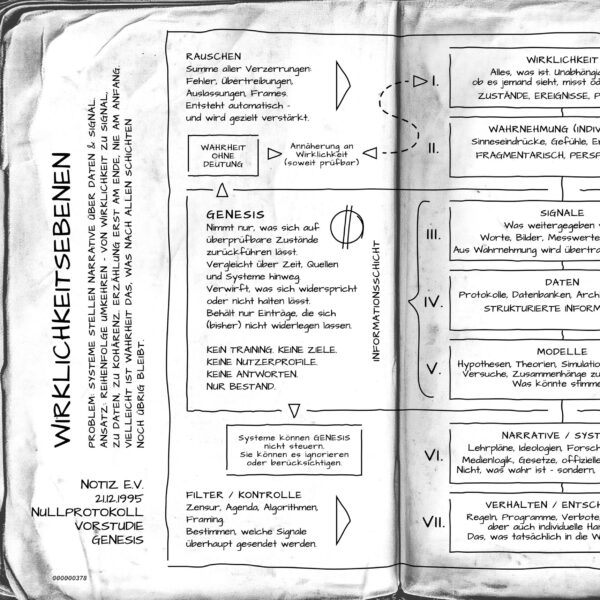 WIRKLICHKEITSEBENEN
PROBLEM: SYSTEME STELLEN NARRATIVE ÜBER DATEN & SIGNAL.
ANSATZ: REIHENFOLGE UMKEHREN - VON WIRKLICHKEIT ZU SIGNAL,
ZU DATEN, ZU KOHÄRENZ. ERZÄHLUNG ERST AM ENDE, NIE AM ANFANG.
VIELLEICHT IST WAHRHEIT DAS, WAS NACH ALLEN SCHICHTEN
NOCH ÜBRIG BLEIBT.
NOTIZ E.V.
21.12.1995
NULLPROTOKOLL
VORSTUDIE
GENESIS
000000378
RAUSCHEN
Summe aller Verzerrungen:
Fehler, Übertreibungen,
Auslassungen, Frames.
Entsteht automatisch -
und wird gezielt verstärkt.
WAHRHEIT
OHNE
DEUTUNG
Annäherung an
Wirklichkeit
(soweit prüfbar)
GENESIS
Nimmt nur, was sich auf
überprüfbare Zustände
zurückführen lässt.
Vergleicht über Zeit, Quellen
und Systeme hinweg.
Verwirft, was sich widerspricht
oder nicht halten lässt.
Behält nur Einträge, die sich
(bisher) nicht widerlegen lassen.
KEIN TRAINING. KEINE ZIELE.
KEINE NUTZERPROFILE.
KEINE ANTWORTEN.
NUR BESTAND.
INFORMATIONSSCHICHT
Systeme können GENESIS
nicht steuern.
Sie können es ignorieren
oder berücksichtigen.
FILTER / KONTROLLE
Zensur, Agenda, Algorithmen,
Framing.
Bestimmen, welche Signale
überhaupt gesendet werden.
I.
WIRKLICHKEIT
Alles, was ist. Unabhängig
ob es jemand sieht, misst
ZUSTÄNDE, EREIGNISSE, P
II.
WAHRNEHMUNG (INDIV
Sinneseindrücke, Gefühle, E
FRAGMENTARISCH, PERSP
III.
SIGNALE
Was weitergegeben
Worte, Bilder, Messwerte
Aus Wahrnehmung wird übertra
IV.
DATEN
Protokolle, Datenbanken, Archi
STRUKTURIERTE INFORM
V.
MODELLE
Hypothesen, Theorien, Simulation
Versuche, Zusammenhänge zu
Was könnte stimme
VI.
NARRATIVE / SYST
Lehrpläne, Ideologien, Forsch
Medienlogik, Gesetze, offizielle
Nicht, was wahr ist - sondern,
VII.
VERHALTEN / ENTSCH
Regeln, Programme, Verbote,
aber auch individuelle Han
Das, was tatsächlich in die W